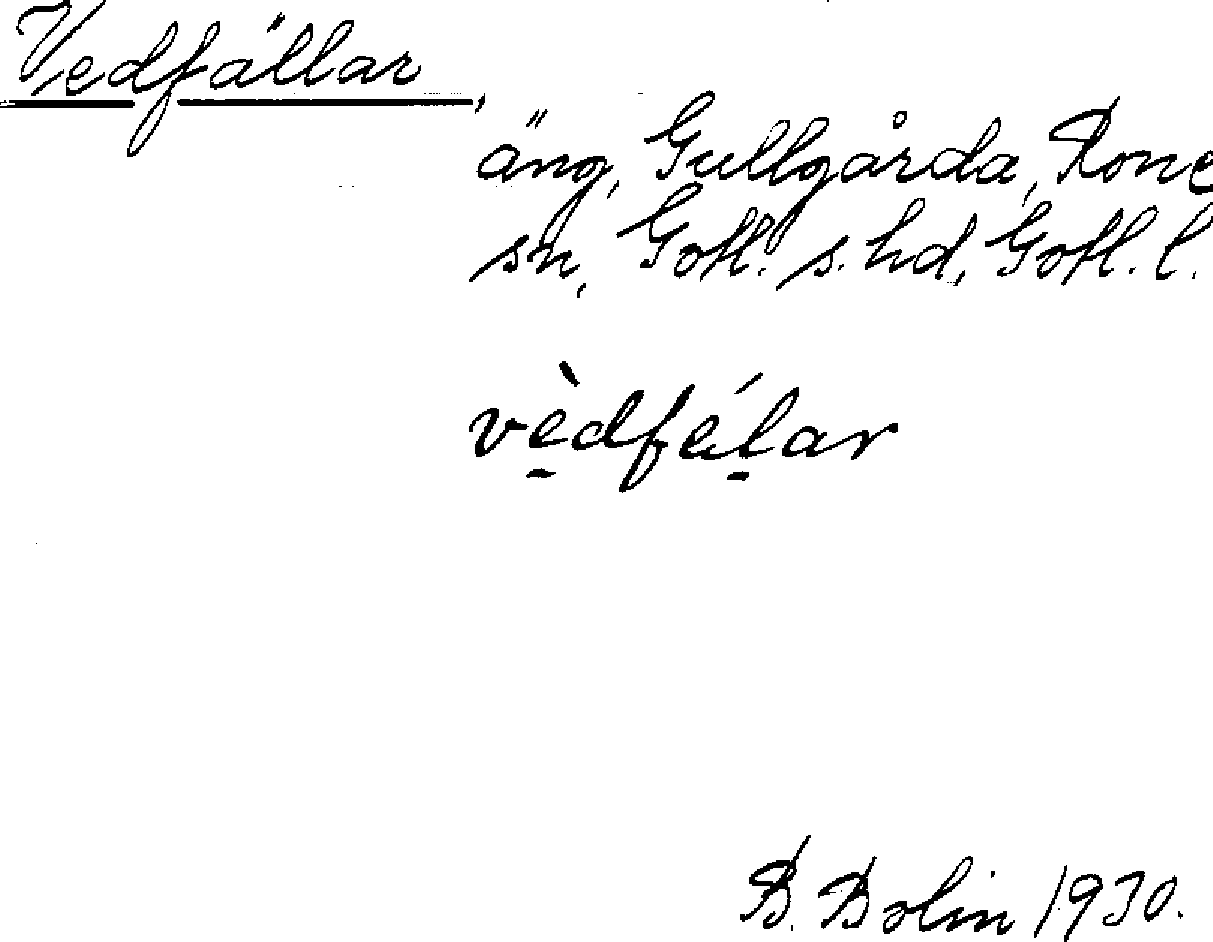 Vedfällar,
äng, Gullgårda, Rone
sn, Gotl. s. hd, Gotl. l.
vè̱dfél̠ar
B. Bolin 1930.